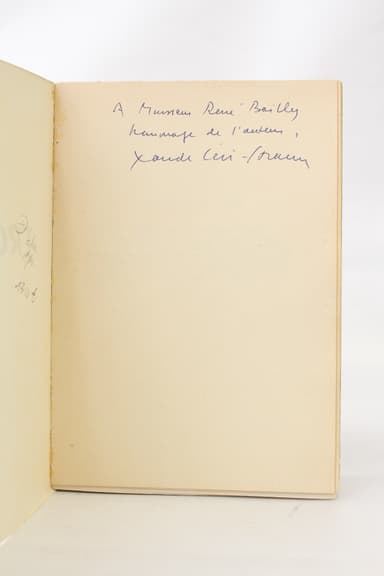 A Monsieur René Bailly
hommage de l'auteur,
Claude Lévi-Strauss